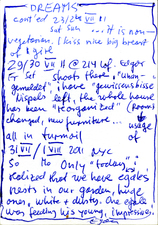 DREAMS
cont'ed 23/24 VII 11
sat sun ... it is now
vegetarian, I kiss nice big breast
of 1 girl
29/30 VII 11 @ 214 of. Edgar
Er set shoots there, "
gemeldet", i have "gewissensbisse"
left, the whole house
has been "reorganized" (Rooms
changed, new furniture...
all in turmoil usage of
31 VII / VIII 2011 NYC
So Mo Only "today" i
realized that we have eagles
nests in our garden, huge
ones, white + dusty. One eagle
was feeding his young, impressive,